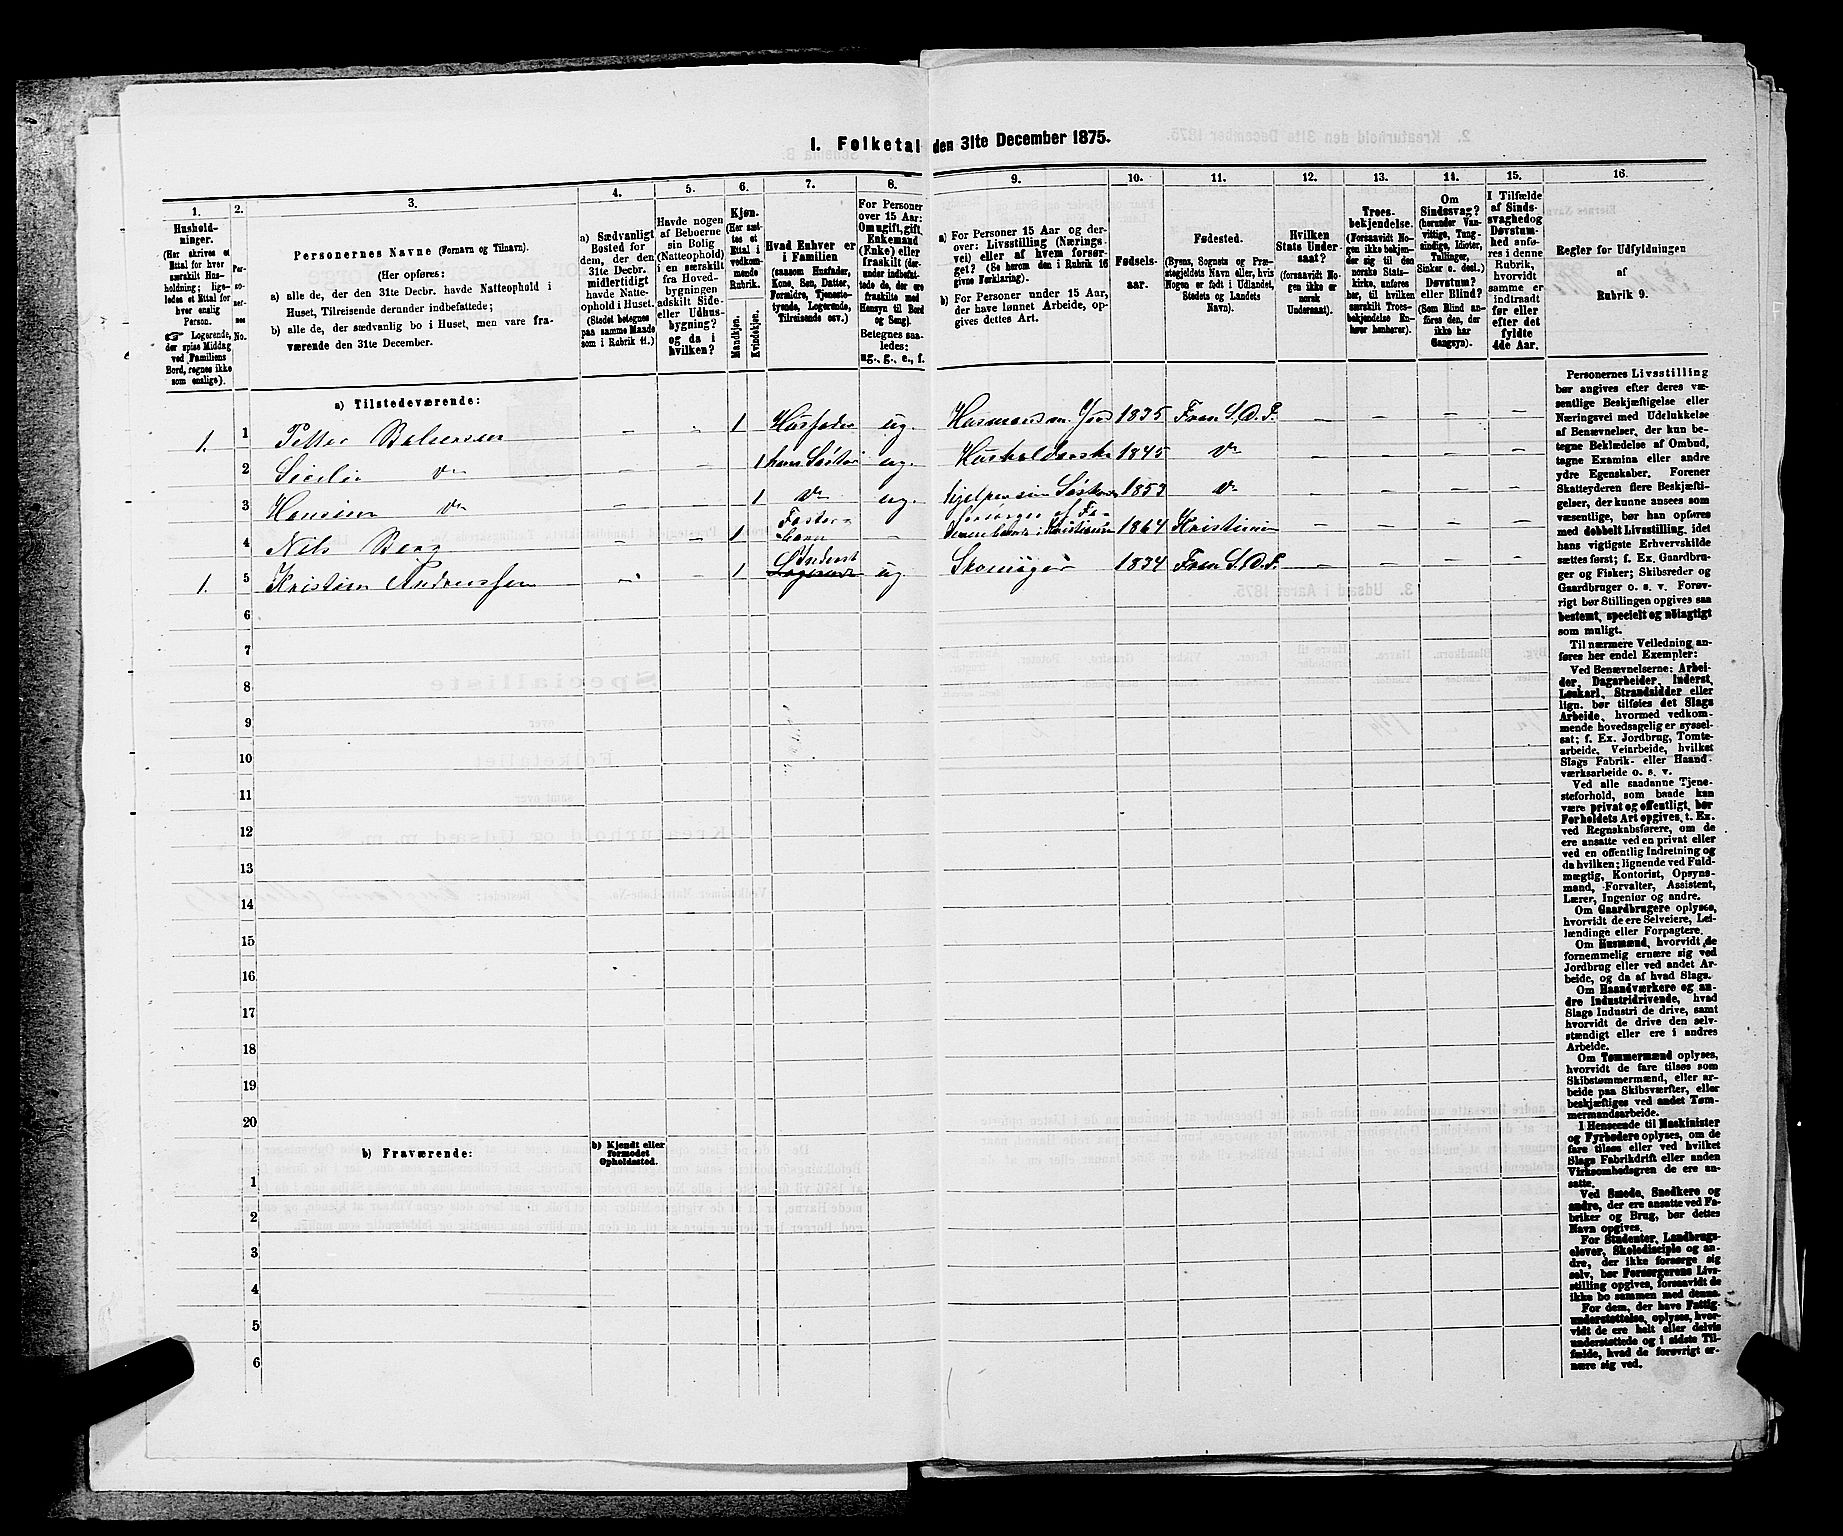 1. Folketal den 31te December 1875.
1.
Hushold-
ninger.
(Her skrives et
Ettal for hver
særskilt Hus-
holdning; lige-
ledes et Ettal for
hver enslig
Person.
☞ Logerende,
der spise Middag
ved Familiens
Bord, regnes ikke
som enslige).
2.
Per-
soner-
nes
No.
3.
Personernes Navne (Fornavn og Tilnavn).
(Her opføres:
a) alle de, der den 31te Decbr. havde Natteophold i
Huset, Tilreisende derunder indbefattede;
b) alle de, der sædvanlig bo i Huset, men vare fra-
værende den 31te December.
4.
a) Sædvanligt
Bosted for
dem, der den
31te Decbr.
midlertidigt
havde Natte-
ophold i Huset.
(Stedet betegnes
paa samme Maade
som i Rubrik 11.)
5.
Havde nogen
af Beboerne
sin Bolig
(Natteophold)
i en særskilt
fra Hoved-
bygningen
adskilt Side-
eller Udhus-
bygning?
og da i
hvilken?
6.
Kjøn.
(Her sæt-
tes et
Ettal i
vedkom-
mende
Rubrik.
Mandkjøn.
Kvindekjøn.
7.
Hvad Enhver er
i Familien
(saasom Husfader,
Kone, Søn, Datter,
Forældre, Tjeneste-
tyende, Logerende,
Tilreisende osv.)
8.
For Personer
over 15 Aar:
Om ugift, gift,
Enkemand
(Enke) eller
fraskilt (der-
under indbefat-
tede de, der ere
fraskilte med
Hensyn til Bord
og Seng).
Betegnes saa-
ledes:
ug., g., e., f.
9.
a) For Personer 15 Aar og der-
over: Livsstilling (Nærings-
vei) eller af hvem forsør-
get? (Se herom den i Rubrik 16
givne Forklaring).
b) For Personer under 15 Aar,
der have lønnet Arbeide, op-
gives dettes Art.
10.
Fødsels-
aar.
11.
Fødested.
(Byens, Sognets og Præ-
stegjeldets Navn eller, hvis
Nogen er født i Udlandet,
Stedets og Landets
Navn).
12.
Hvilken
Stats Under-
saat?
(forsaavidt No-
gen ikke er
norsk
Undersaat).
13.
Troes-
bekjendelse.
(Forsaavidt No-
gen ikke bekjen-
der sig til den
norske Stats-
kirke, anføres
her, til hvilken
særskilt Troes-
bekjendelse En-
hver henhører).
14.
Om
Sindssvag?
(herunder Van-
vittige, Tung-
sindige, Idioter,
Tullinger,
Sinker o. desl.)
Døvstum?
eller Blind?
(Som Blind an-
føres den, der
ikke har
Gangsyn).
15.
I Tilfælde
af Sinds-
svaghed og
Døvstum-
hed anfø-
res i denne
Rubrik,
hvorvidt
samme er
indtraadt
før eller
efter det
fyldte
4de Aar.
16.
Regler for Udfyldningen
af
Rubrik 9.
a) Tilstedeværende:
1. 1 Petter Halvorsen – – 1 Husfader ug. Husmand m. Jord 1835 Fron S. D. P. – – – –
2 Sicilie do – – 1 hans Søster ug. Husholderske 1845 do – – – –
3 Hansine do – – 1 do ug. hjelper sin Søskende 1853 do – – – –
4 Nils Berg – – 1 Foster-
barn – forsørges af Fa-
i Kristiania 1864 Kristiania – – – –
1. 5 Kristian Andreassen – – 1 Inderst
Logerende ug. Skomager 1834 Fron S. D. P. – – – –
6
7
8
9
10
11
12
13
14
15
16
17
18
19
20
b) Fraværende:
b) Kjendt eller
formodet
Opholdssted.
1
2
3
4
5
6
Personernes Livsstilling
bør angives efter deres væ-
sentlige Beskjæftigelse eller
Næringsvei med Udelukkelse
af Benævnelser, der kun be-
tegne Beklædelse af Ombud,
tagne Examina eller andre
ydre Egenskaber. Forener
Skatteyderen flere Beskjæfti-
gelser, der kunne ansees som
væsentlige, bør han opføres
med dobbelt Livsstilling, idet
hans vigtigste Erhvervskilde
sættes først; f. Ex. Gaardbru-
ger og Fisker; Skibsreder og
Gaardbruger o. s. v. Forøv-
rigt bør Stillingen opgives saa
bestemt, specielt og nøiagtigt
som muligt.
Til nærmere Veiledning an-
føres her endel Exempler:
Ved Benævnelserne: Arbei-
der, Dagarbeider, Inderst,
Løskarl, Strandsidder eller
lign. bør tilføies det Slags
Arbeide, hvormed vedkom-
mende hovedsagelig er syssel-
sat; f. Ex. Jordbrug, Tomte-
arbeide, Veiarbeide, hvilket
Slags Fabrik- eller Haand-
værksarbeide o. s. v.
Ved alle saadanne Tjene-
steforhold, som baade kan
være privat og offentligt, bør
Forholdets Art opgives, t. Ex.
ved Regnskabsførere, om de
ere ansatte ved en privat eller
ved en offentlig Indretning og
da hvilken; lignende ved Fuld-
mægtig, Kontorist, Opsyns-
mand, Forvalter, Assistent,
Lærer, Ingeniør og andre.
Om Gaardbrugere oplyses,
hvorvidt de ere Selveiere, Lei-
lændinge eller Forpagtere.
Om Husmænd, hvorvidt de
fornemmelig ernære sig ved
Jordbrug eller ved andet Ar-
beide, og da af hvad Slags.
Om Haandværkere og an-
dre Industridrivende, hvad
Slags Industri de drive, samt
hvorvidt de drive den selv-
stændigt eller ere i andres
Arbeide.
Om Tømmermænd oplyses,
hvorvidt de fare tilsøs som
Skibstømmermænd, eller ar-
beide paa Skibsværfter, eller
beskjæftiges ved andet Tøm-
mermandsarbeide.
I Henseende til Maskinister
og Fyrbødere oplyses, om de
fare tilsøs eller ved hvilket
Slags Fabrikdrift eller anden
Virksomhedsgren de ere an-
satte.
Ved Smede, Snedkere og
andre, der ere ansatte ved Fa-
briker og Brug, bør dettes
Navn opgives.
For Studenter, Landbrugs-
elever, Skoledisciple og an-
dre, der ikke forsørge sig
selv, bør Forsørgerens Livs-
stilling opgives, forsaavidt de
ikke bo sammen med denne.
For dem, der have Fattig-
understøttelse, oplyses, hvor-
vidt de ere helt eller delvis
understøttede og i sidste Til-
fælde, hvad de forøvrigt er-
nære sig ved.